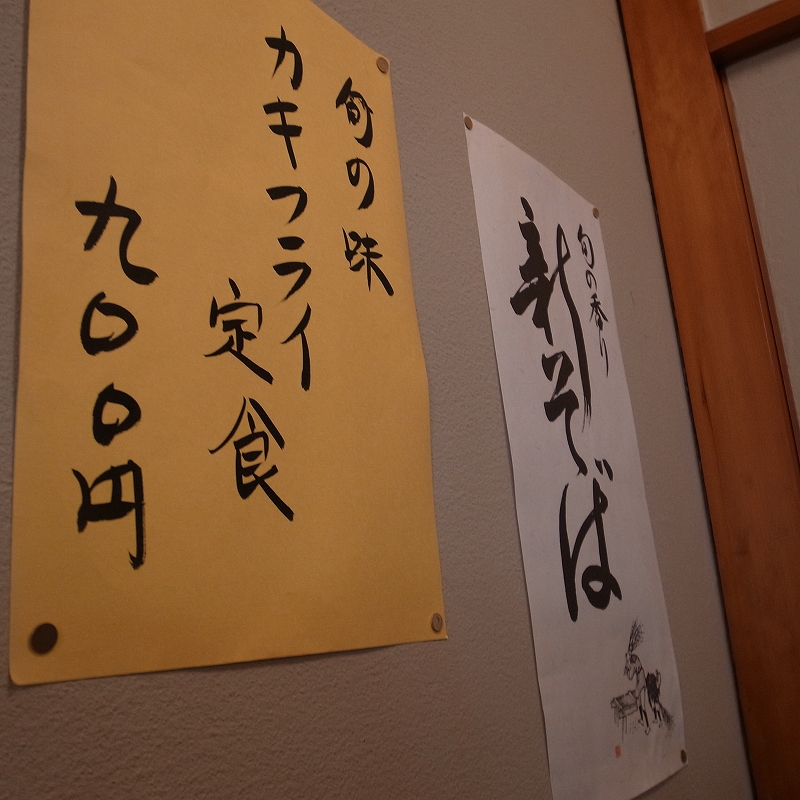 旬の味
カキフライ
定食
九〇〇円
旬の香り
新そば